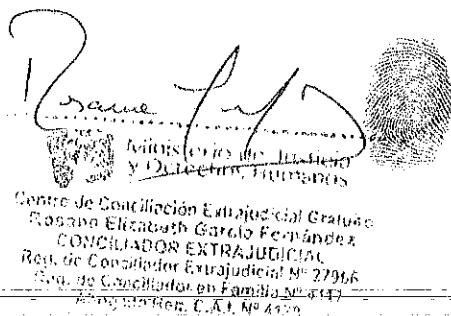 Ministerio de Justicia
y Derechos Humanos
Centro de Conciliación Extrajudicial Gratuito
Elizabeth García Fernández
CONCILIADOR EXTRAJUDICIAL
Reg. de Conciliador Extrajudicial Nº
Reg. de Conciliador en Familia Nº
Reg. C.A.L. Nº